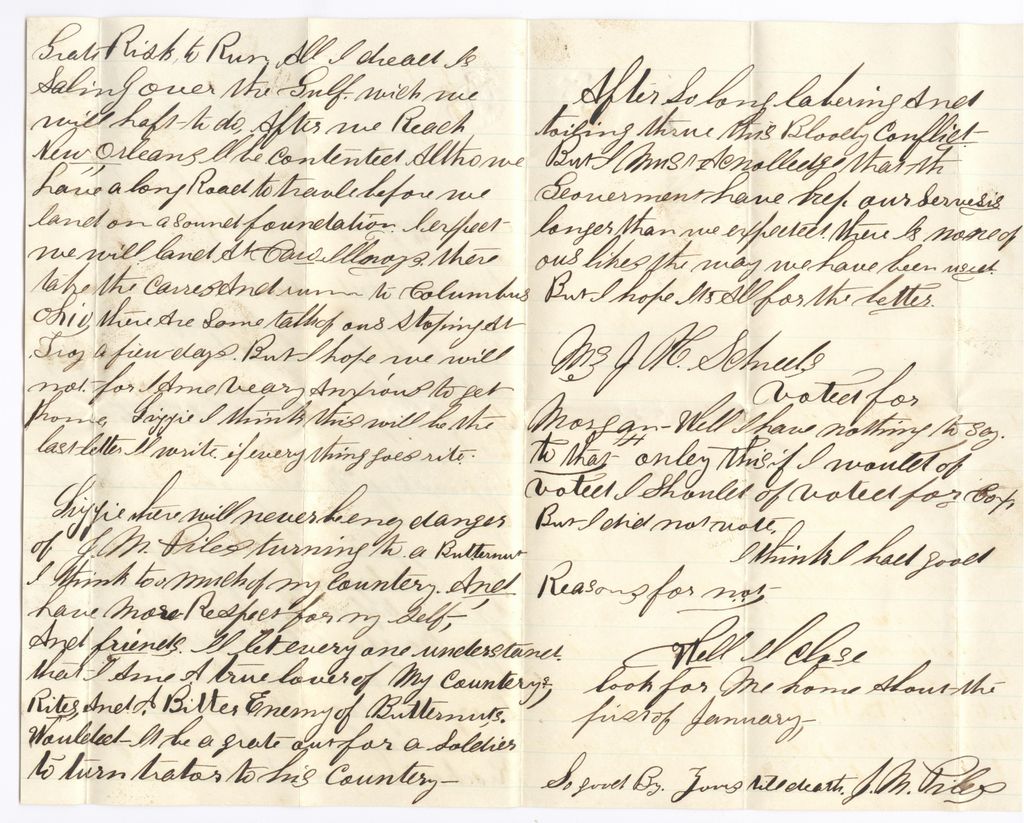 Grate Risk, to Run, All I dread Is
Saling over the Gulf. wich we
will haft to do, After we Reach
New, Orleans Ill be contented Altho we
have a long Road to travle before we
land on a sound foundation. I expect
we will land At Cairo Illenoys, there
take the carres And runn to Columbus
Ohio, there Are Some talk of ous stoping At
Troy a fiew days. But I hope we will
not. for I Ame veary Anxious to get
home, Lizzie I think this will be the
last letter Ill write, if every thing goes rite.
Lizzie there will never be eny danger
of J. M. Piles turning to. a Butternut
I think too much of my Countery. And
have More Respect for my Self,
And friends. Ill let every one understand.
that I Ame A true lover of My Counterys,
Rites, And A Bitter Enemy of Butternuts.
Wouldent It be a grate ous for a Soldier
to turn trator to his Countery—
After So long labering And
toiling thrue this Bloody Conflict—
But I Must Acnolledge that the
Gouverment have kep. our Servesis
longer than we expected. there Is none of
ous likes the way we have been used.
But I hope Its All for the better.
Mr J H. Scheels
voted for
Morgan— Well I have nothing to say.
to that onley this, if I would of
voted I Should of voted for Cox,
But I did not vote,
I think I had good
Reasons for not,
Well Ill close
look for Me home About the
first of January,
So good By. Yours till death. J. M. Piles